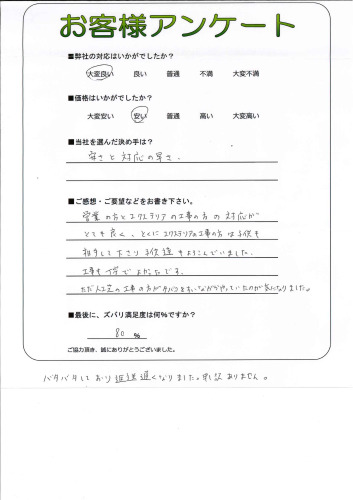 お客様アンケート
■弊社の対応はいかがでしたか？
大変良い 良い 普通 不満 大変不満
■価格はいかがでしたか？
大変安い 安い 普通 高い 大変高い
■当社を選んだ決め手は？
安さと対応の早さ.
■ご感想・ご要望などをお書き下さい。
営業の方とエクステリアの工事の方の対応が
とても良く、とくにエクステリアの工事の方は子供も
相手して下さり子供達もよろこんでいました.
工事も丁寧でよかったです.
ただ人工芝の工事の方がタバコをすいながらやっていたのが気になりました。
■最後に、ズバリ満足度は何%ですか？
80 %
ご協力頂き、誠にありがとうございました。
バタバタしており返送遅くなりました。申し訳ありません。